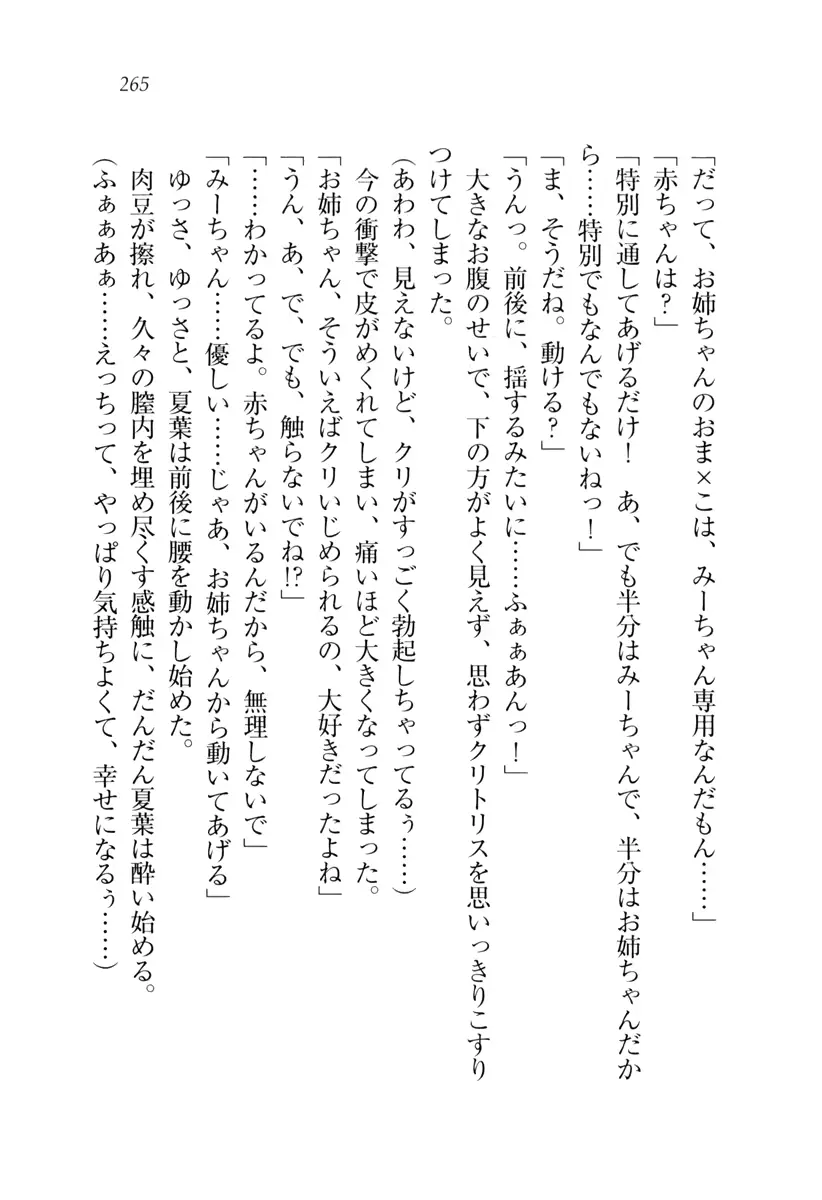 265
「だって、お姉ちゃんのおま×こは、みーちゃん専用なんだもん……」
「赤ちゃんは?」
「特別に通してあげるだけ! あ、でも半分はみーちゃんで、半分はお姉ちゃんだか
ら……特別でもなんでもないねっ!」
「ま、そうだね。動ける?」
「うんっ。前後に、揺するみたいに……ふぁぁあんっ!」
大きなお腹のせいで、下の方がよく見えず、思わずクリトリスを思いっきりこすり
つけてしまった。
(あわわ、見えないけど、クリがすっごく勃起しちゃってるぅ……)
今の衝撃で皮がめくれてしまい、痛いほど大きくなってしまった。
「お姉ちゃん、そういえばクリいじめられるの、大好きだったよね」
「うん、あ、で、でも、触らないでね!?」
「……わかってるよ。赤ちゃんがいるんだから、無理しないで」
「みーちゃん……優しい……じゃあ、お姉ちゃんから動いてあげる」
ゆっさ、ゆっさと、夏葉は前後に腰を動かし始めた。
肉豆が擦れ、久々の膣内を埋め尽くす感触に、だんだん夏葉は酔い始める。
(ふぁぁあぁ……えっちって、やっぱり気持ちよくて、幸せになるぅ……)